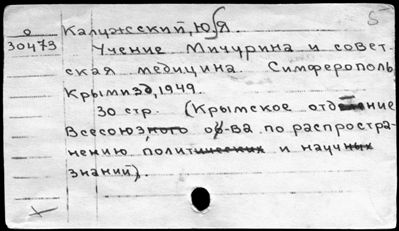 Калужский, Ю Я.
30473
Учение Мичурина и совет-
ская медицина. Симферополь,
Крымизд, 1949.
30 стр. (Крымское отделение
Всесоюзного об-ва по распростра-
нению политических и научных
знаний).